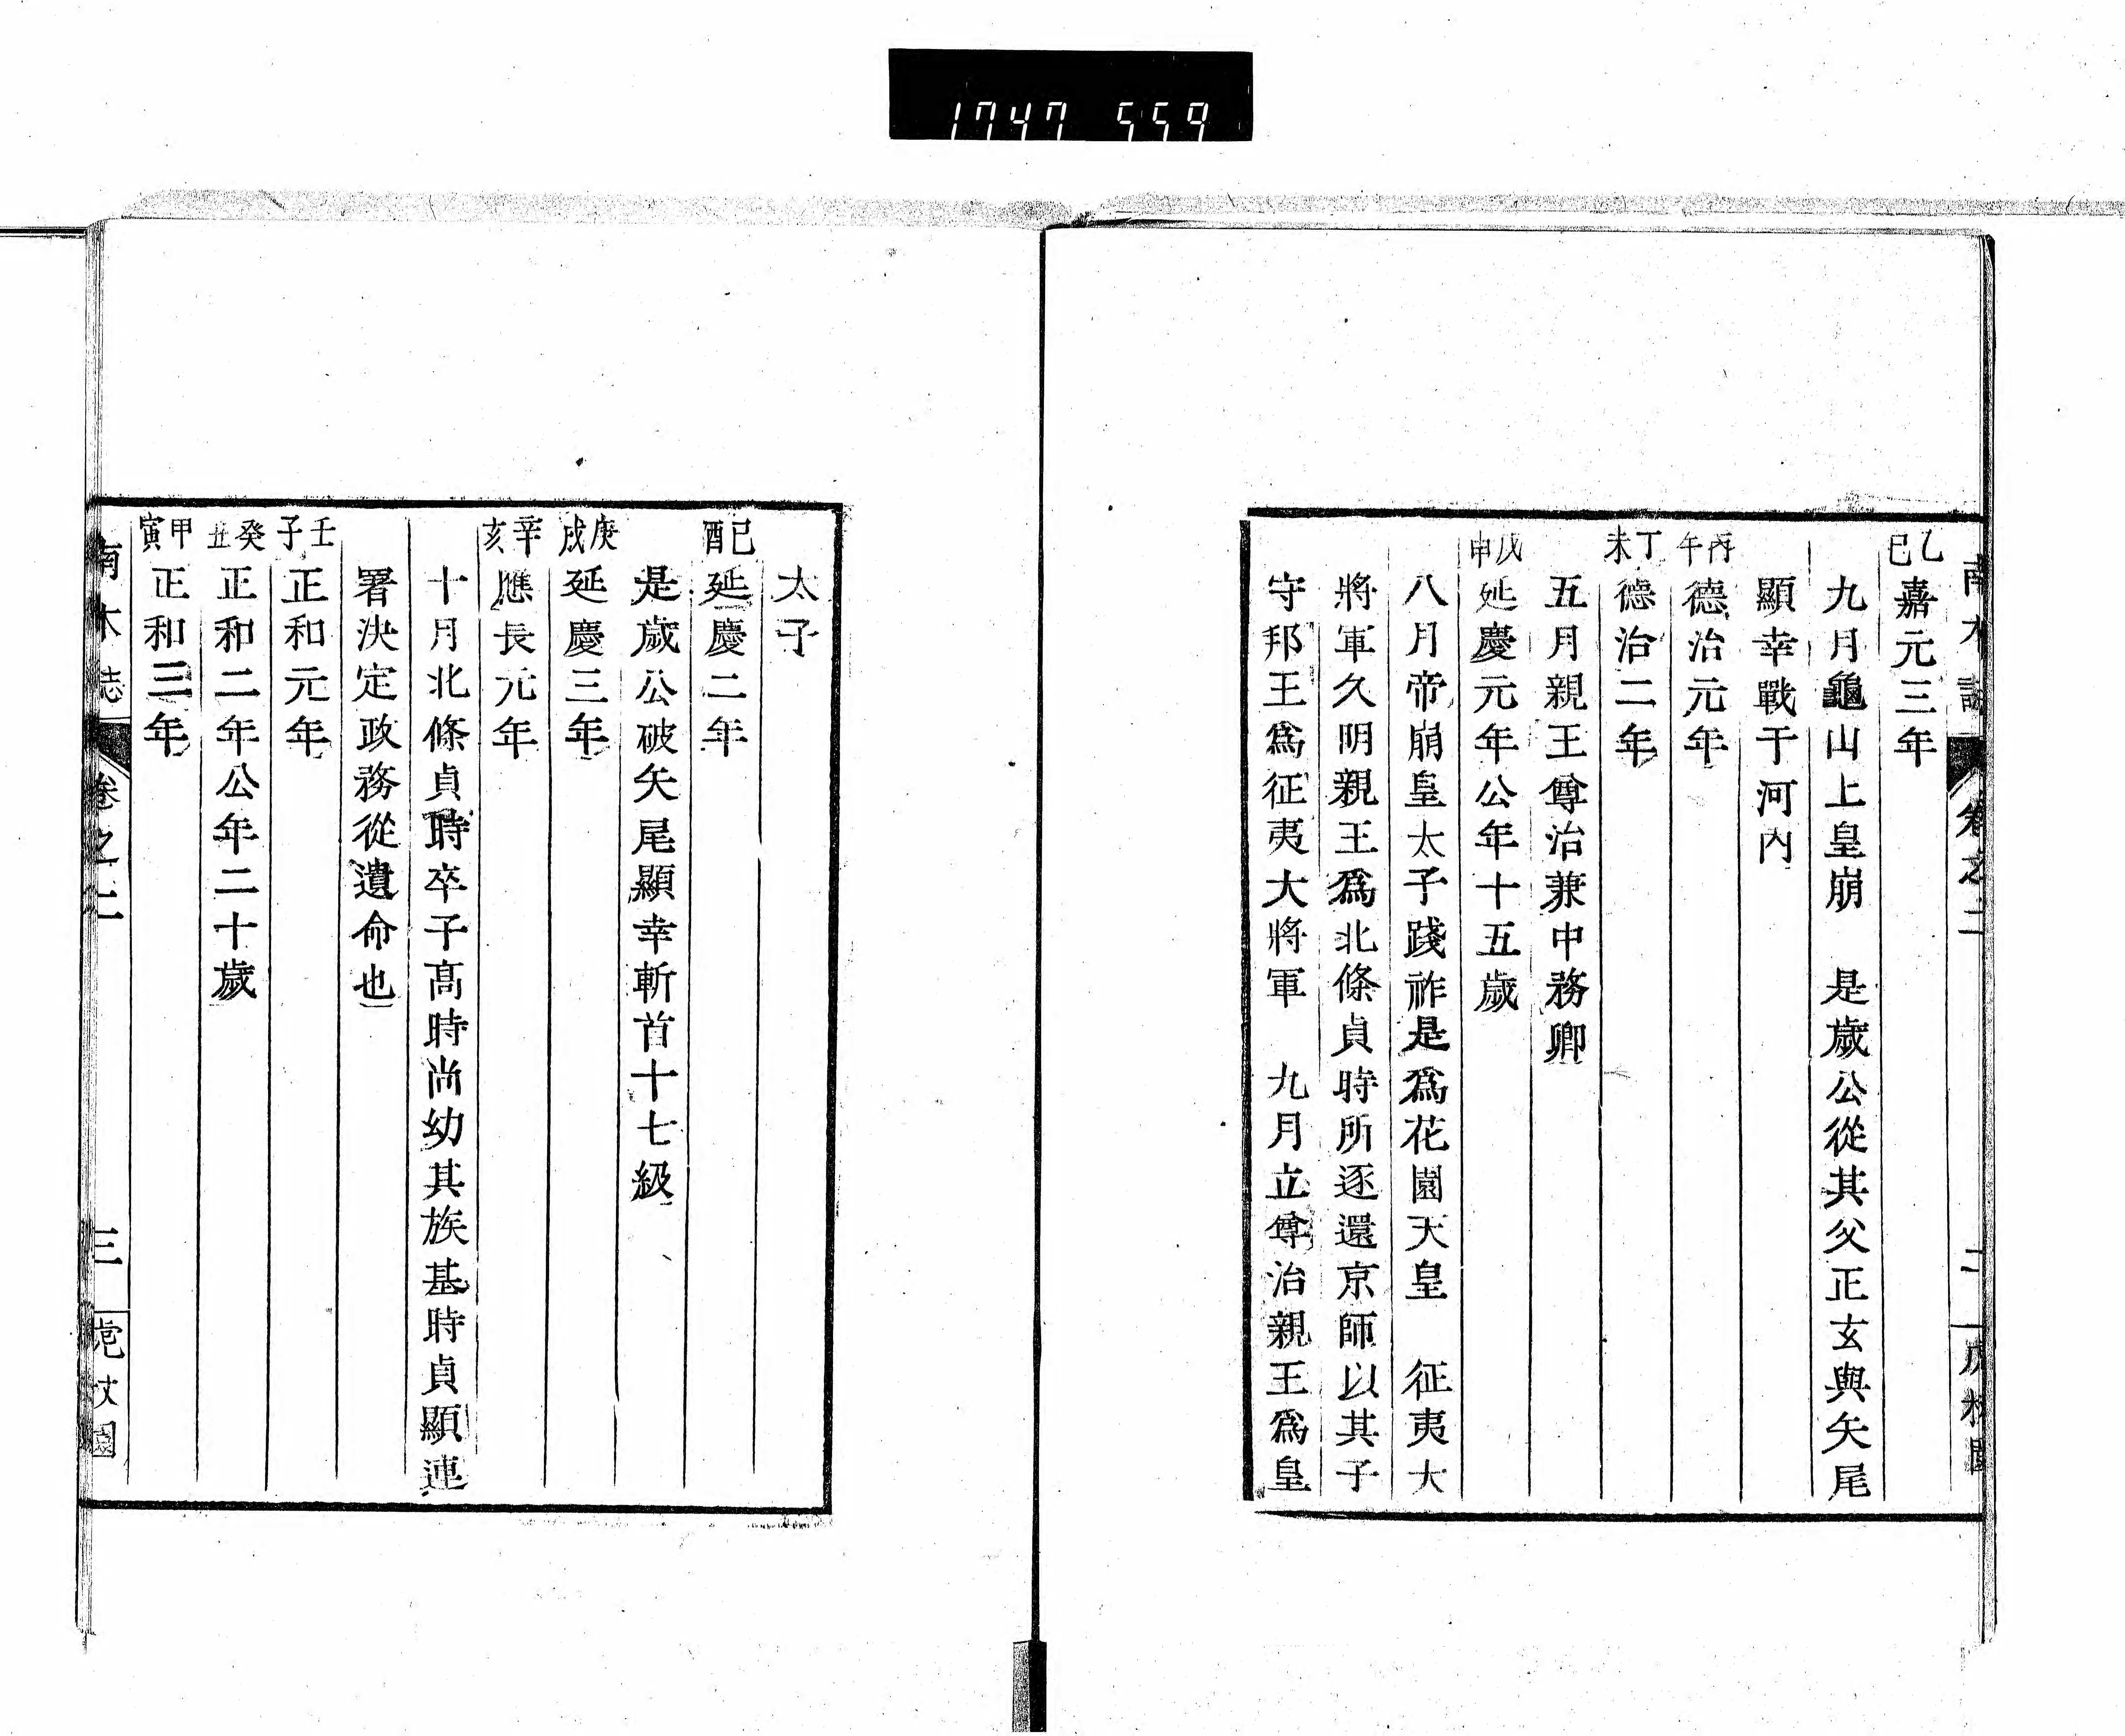 1747 559
乙巳嘉元三年
九月龜山上皇崩　是歲公從其父正玄與矢尾
顯幸戰于河內
丙午德治元年
丁未德治二年
五月親王尊治兼中務卿
戊申延慶元年公年十五歲
八月帝崩皇太子踐祚是爲花園天皇　征夷大
將軍久明親王爲北條貞時所逐還京師以其子
守邦王爲征夷大將軍　九月立尊治親王爲皇
太子
己酉延慶二年
是歲公破矢尾顯幸斬首十七級
庚戌延慶三年
辛亥應長元年
十月北條貞時卒子高時尚幼其族基時貞顯連
署決定政務從遺命也
壬子正和元年
癸丑正和二年公年二十歲
甲寅正和三年
南木誌　卷之二　三